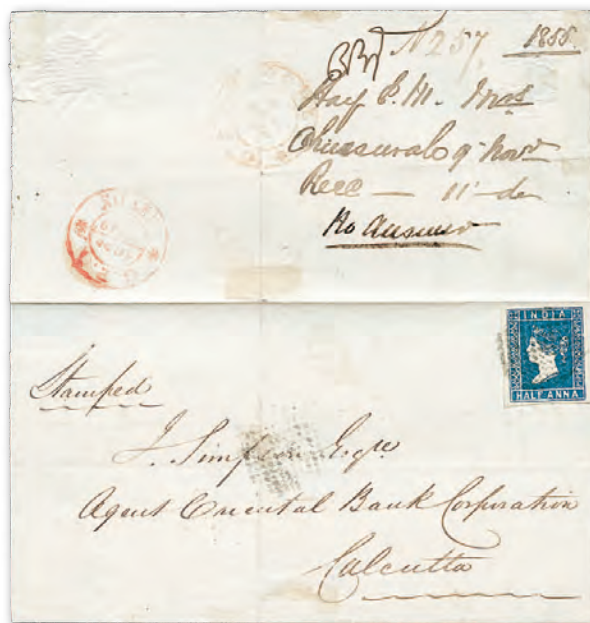 N 257 1855
Hay E. M. Mrs
9 Novr
Recd — 11 do
No Answer
INDIA
HALF ANNA
Stamped
J. Simpson Esqre
Agent Oriental Bank Corporation
Calcutta